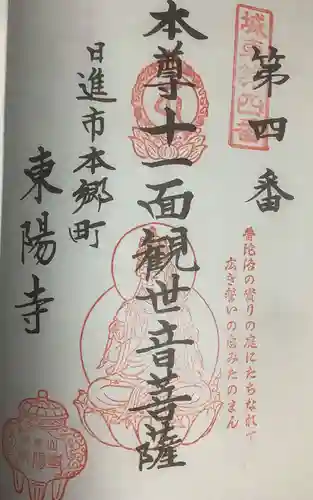 城東第四番
第四番
普陀洛の貴りの庭にたちなれて
広き誓いの国みたのまん
本尊十一面観世音菩薩
日進市本郷町
東陽寺